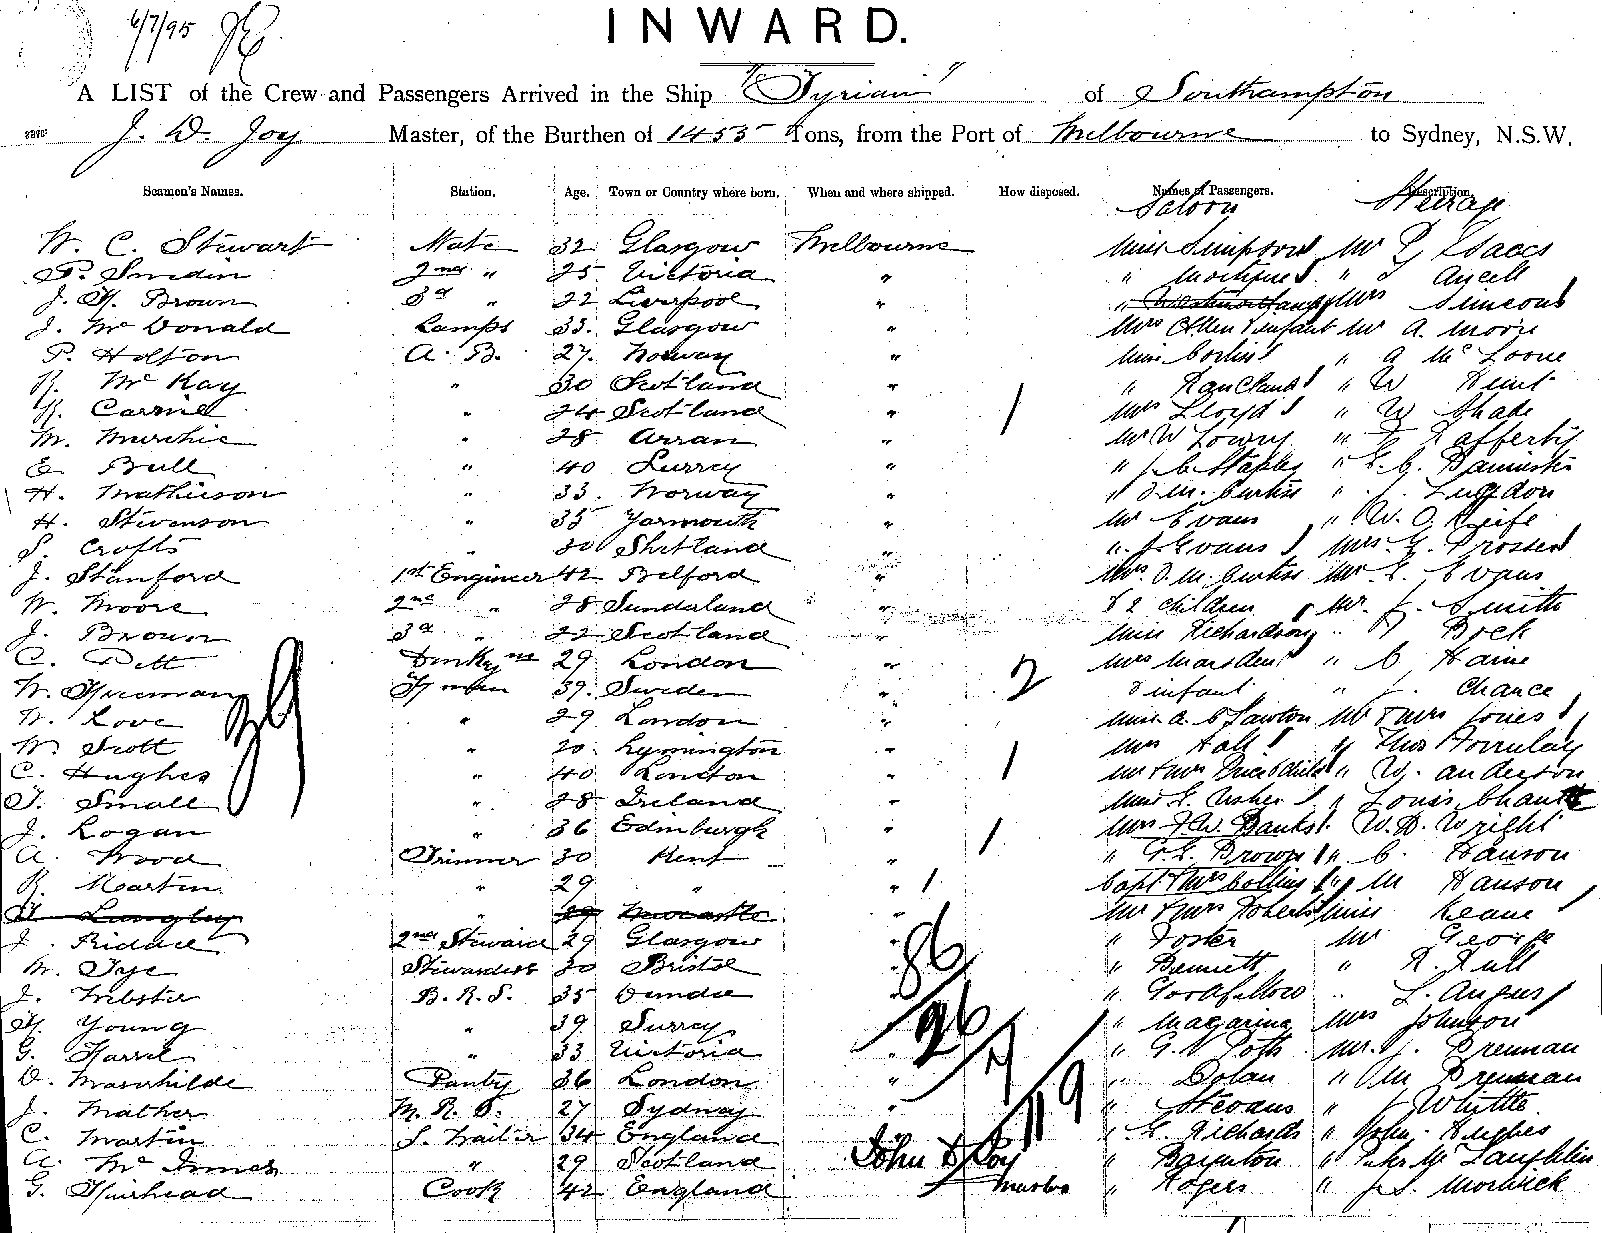 6/7/95
INWARD.
A LIST of the Crew and Passengers Arrived in the Ship "Tyrian" of Southampton
J. D. Joy Master, of the Burthen of 1455 Tons, from the Port of Melbourne to Sydney, N.S.W.
Seamen's Names. Station. Age. Town or Country where born. When and where shipped. How disposed. Names of Passengers. Description.
Saloon Steerage
W. C. Stewart Mate 32 Glasgow Melbourne Miss Simpson Mr Isaacs
2nd " 25 Victoria " " " Ancell
J. H. Brown 3rd " 22 Liverpool " " Mrs Simeons
J. McDonald Lamps 33. Glasgow " Mrs Allen & infant Mr A. Moore
P. Holton A. B. 27. Norway " Miss " A McLoone
R. McKay " 30 Scotland " " " W Hunt
R. Carrie " 24 Scotland " Mrs Lloyd " W Shade
M. Murchie " 28 Arran " Mr W Lowry " Rafferty
E. Bull " 40 Surrey " " J. C. Staples " Bannister
H. Mathieson " 33. Norway " " D. M. Curtiss " J. Lugdon
H. Stevenson " 35 Yarmouth " Mr Evans " W. O'Keife
S. Crofts " 30 Shetland " " J Evans Mrs. Prosser
J. Stanford 1st Engineer 42 Belford " Mrs. D. M. Curtiss Mr E. Evans
W. Moore 2nd " 28 Sunderland " & 2 children Mr. J. Smith
J. Brown 3rd " 22 Scotland " Miss Richardson " Bock
C. Pett Donkeyman 29 London " 2 Mrs Marsden " C Haine
W. Freeman F man 39. Sweden " & infant " J. Chance
W. Love " 29 London " Miss A. C Lawton Mr & Mrs Jones
W. Scott " 30. Lymington " 1 Mrs Hall " Thos
C. Hughes " 40 London " Mr & Mrs Price & child " W. Anderson
T. Small " 28 Ireland " Miss E. Usher " Louis
J. Logan " 36 Edinburgh " 1 Mrs F. W. Banks W. H. Wright
A. Wood Trimmer 30 Kent " " G. E. Brown " C. Hanson
R. Martin " 29 " " 1 Capt & Mrs Collins " M Hanson
H. Langley " 29 Newcastle " Mr & Mrs Roberts Miss Keane
J. Riddle 2nd Steward 29 Glasgow " " Foster Mr George
M. Tye Stewardess 30 Bristol " " Bennett " R. Rull
J. Webster B. R. S. 35 Dundee " " Goodfellow " L. Angus
H. Young " 39 Surrey " Magarina Mrs Johnson
G. " 33 Victoria " " G. V Potts Mr. J. Brennan
D. Pantry 36 London " " Dolan " M Brennan
J. Mather M. R. S. 27 Sydney " " Stevens " J Whittle
C. Martin S. Waiter 34 England " E. Richards " John Hughes
A. McInnes " 29 Scotland " Baynton " McLaughlin
G. Muirhead Cook 42 England " Rogers " J. S.
39
86
26
7
119
John D Joy
Master